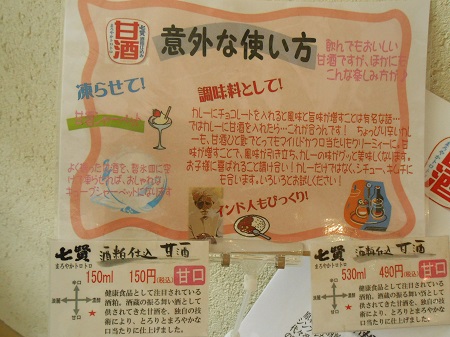 七賢
甘酒
意外な使い方
飲んでもおいしい
甘酒ですが、ほかに
こんな楽しみ方が
凍らせて!
調味料として!
カレーにチョコレートを入れると風味と旨味が増すことは有名な話…
ではカレーに甘酒を入れたら…これが合うんです! ちょっぴり辛いカレ
ーも、カップ甘酒ひと匙でとってもマイルドかつ口当たりもクリーミーに。甘
味が増すことで、風味が引き立ち、カレーの味がグッと美味しくなります。
お子様に喜ばれること請け合い!カレーだけではなく、シチュー、キムチに
も合います。いろいろとお試しください!
インド人もびっくり!
七賢 酒粕仕込 甘酒
まろやかトロトロ
150ml 150円(税込)
甘口
辛口
淡麗
濃醇
甘口
健康食品として注目されている
酒粕。酒蔵の振る舞い酒として
供されてきた甘酒を、独自の技
術により、とろりとまろやかな
口当たりに仕上げました。
七賢 酒粕仕込 甘酒
まろやかトロトロ
530ml 490円(税込)
甘口
辛口
淡麗
濃醇
甘口
健康食品として注目されている
酒粕。酒蔵の振る舞い酒として
供されてきた甘酒を、独自の技
術により、とろりとまろやかな
口当たりに仕上げました。